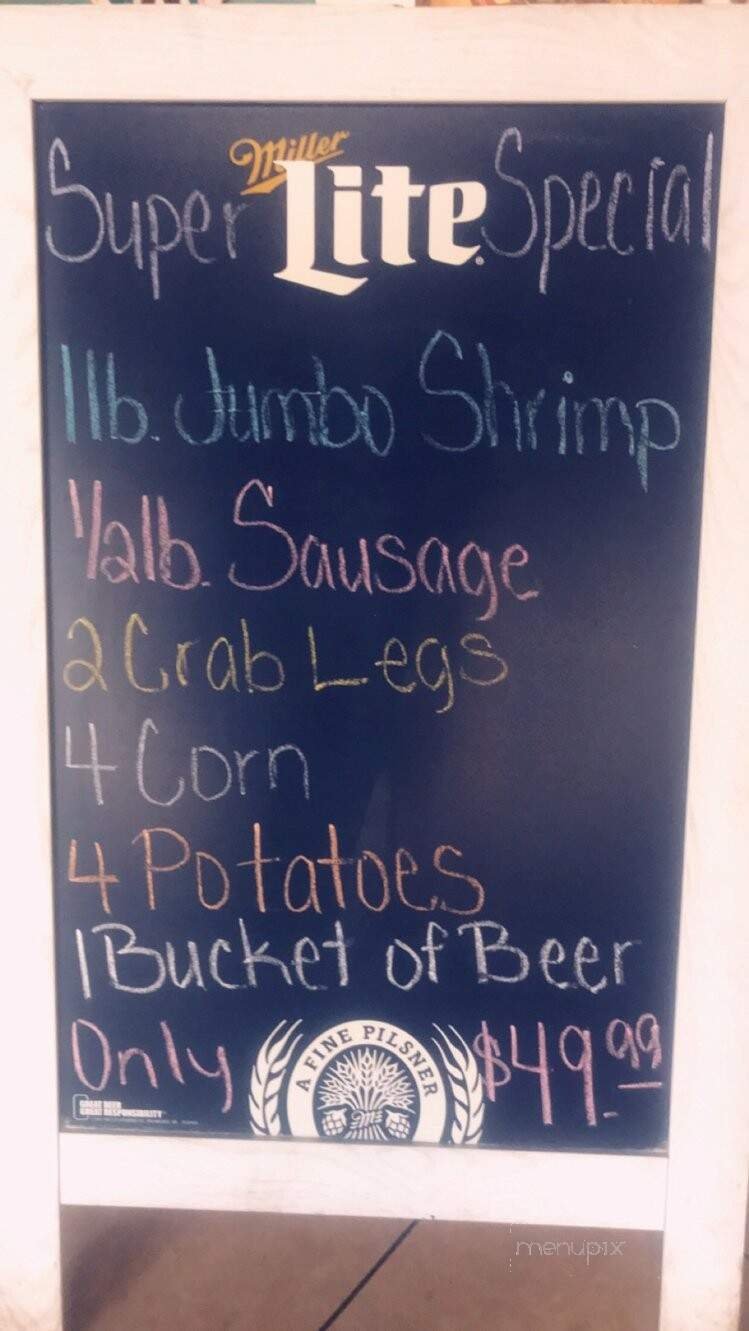 Super Miller Lite Special
1lb. Jumbo Shrimp
1/2lb. Sausage
2 Crab Legs
4 Corn
4 Potatoes
1 Bucket of Beer
Only $49.99
A FINE PILSNER
GREAT BEER
GREAT RESPONSIBILITY
menupix